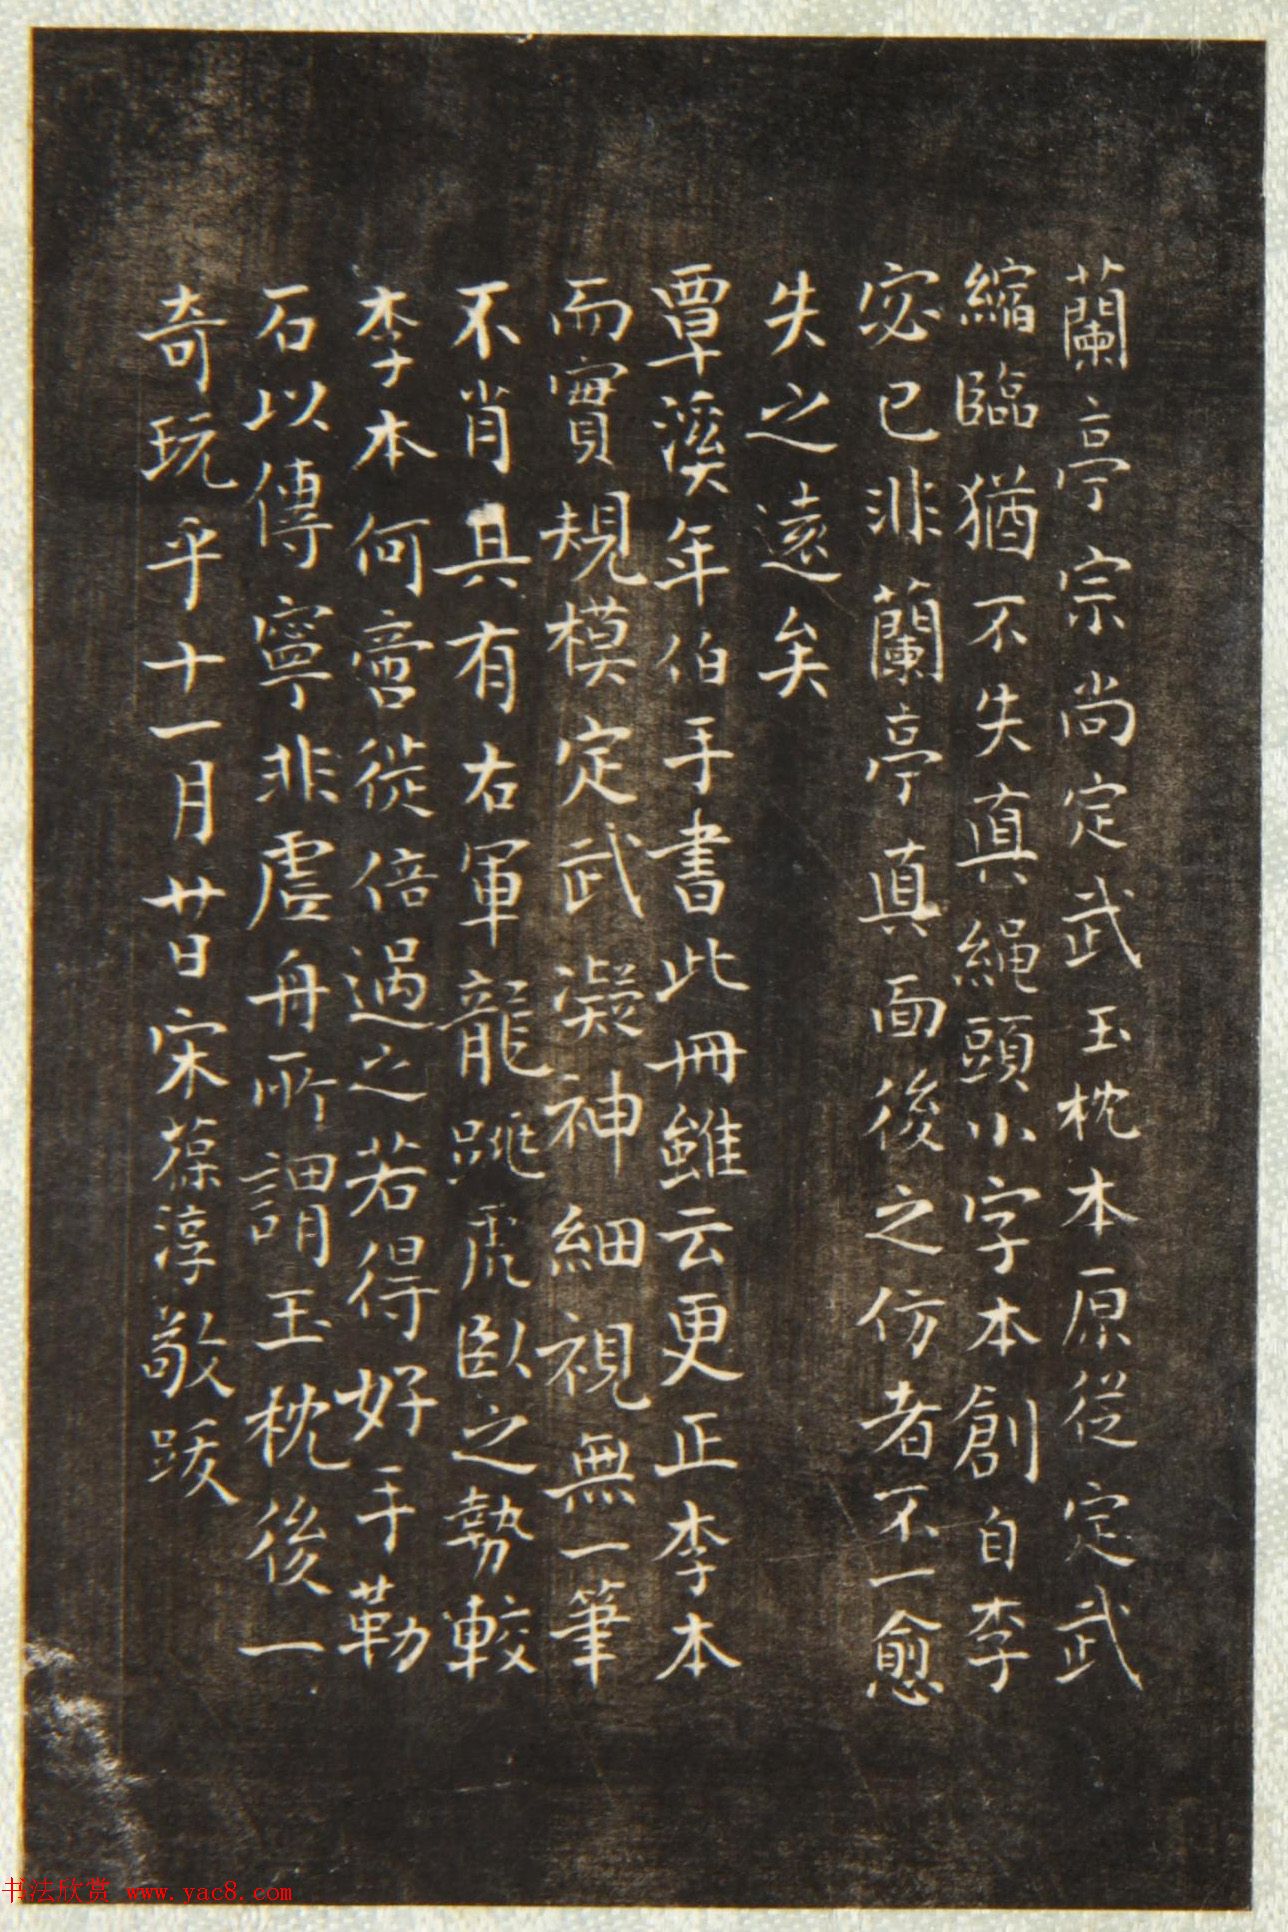 蘭亭宗尚定武玉枕本原從定武
縮臨猶不失真繩頭小字本創自李
宓已非蘭亭真面後之仿者不一愈
失之遠矣
覃溪年伯手書此冊雖云更正李本
而實規模定武凝神細視無一筆
不肖具有右軍龍跳虎臥之勢較
李本何啻徙倍過之若得好手勒
石以傳寧非虛舟所謂玉枕後一
奇玩乎十一月廿日宋葆淳敬跋
书法欣赏 www.yac8.com